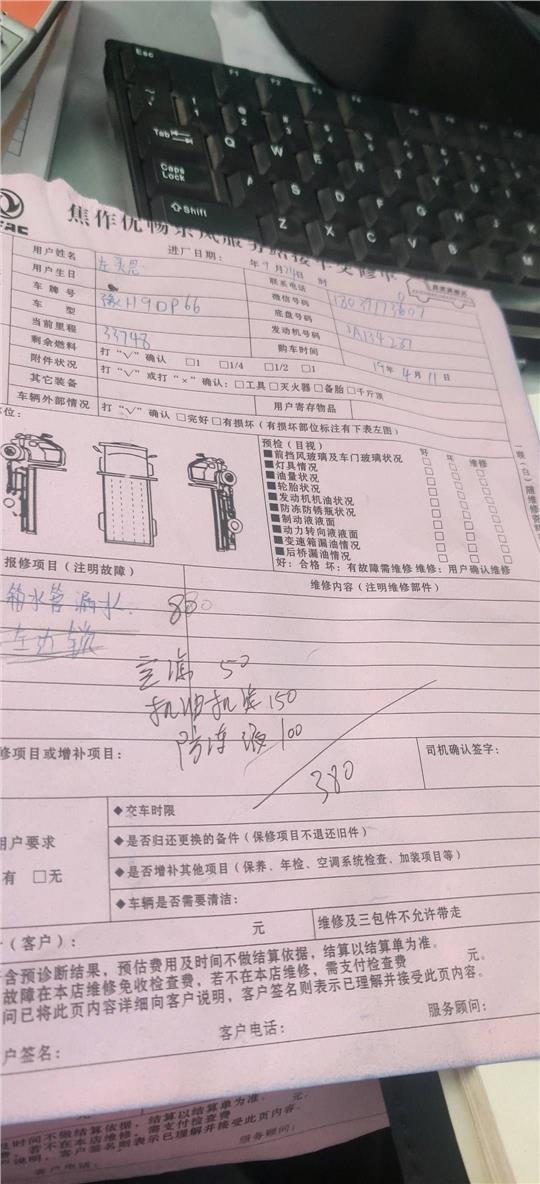 Esc F1 F2 F3 F4
Q W E R T
Tab
A S D F G H J K
Caps Lock
Shift
Z X C V B N M
焦作优畅东风服务站接车交修单
进厂日期: 年9月24日 时
用户姓名 联系电话
用户生日 微信号码
车牌号 豫H9DP66 底盘号码
车型 发动机号码
当前里程 33748 购车时间 19年4月11日
剩余燃料 打“√”确认 □1 □1/4 □1/2 □1
附件状况 打“√”或打“×”确认:□工具□灭火器□备胎□千斤顶
其它装备 用户寄存物品
车辆外部情况 打“√”确认 □完好□有损坏(有损坏部位标注有下表左图)
部位:
预检(目视) 好 坏 维修
■前挡风玻璃及车门玻璃状况 □ □ □
■灯具情况 □ □ □
■油量状况 □ □ □
■轮胎状况 □ □ □
■发动机机油状况 □ □ □
■防冻防锈瓶状况 □ □ □
■制动液液面 □ □ □
■动力转向液液面 □ □ □
■变速箱漏油情况 □ □ □
■后桥漏油情况 □ □ □
好:合格 坏:有故障需维修 维修:用户确认维修
报修项目(注明故障) 维修内容(注明维修部件)
箱水管漏水.
左边锁
空滤 50
机油机滤 150
防冻液 100
380
修项目或增补项目: 司机确认签字:
用户要求
有 □无
◆交车时限
◆是否归还更换的备件(保修项目不退还旧件)
◆是否增补其他项目(保养、年检、空调系统检查、加装项目等)
◆车辆是否需要清洁:
(客户): 元 维修及三包件不允许带走
含预诊断结果,预估费用及时间不做结算依据,结算以结算单为准。
故障在本店维修免收检查费,若不在本店维修,需支付检查费 元。
问已将此页内容详细向客户说明,客户签名则表示已理解并接受此页内容。
户签名: 客户电话: 服务顾问:
元
及时间不做结算依据,结算以结算单为准.
费,若不在本店维修,需支付检查费 元.
说明,客户签名则表示已理解并接受此页内容。
客户电话: 服务顾问: